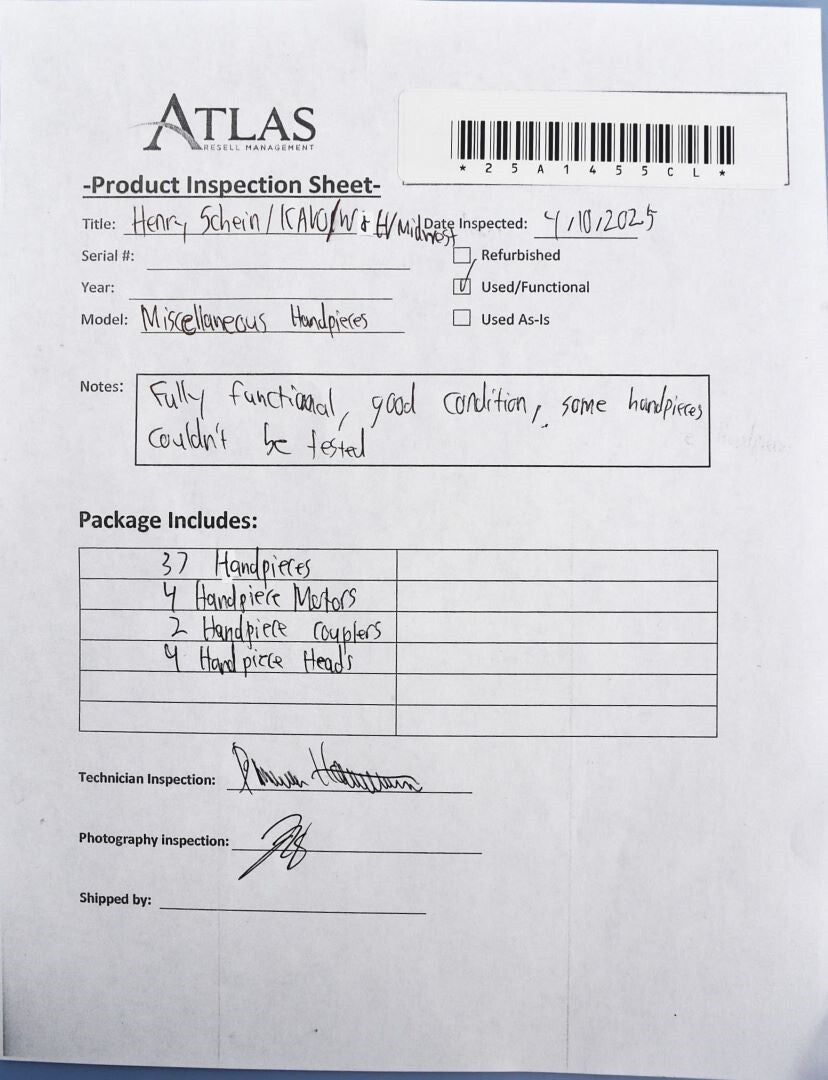 ATLAS
RESELL MANAGEMENT
* 2 5 A 1 4 5 5 C L *
-Product Inspection Sheet-
Title: Henry Schein/KAVO/W&H/Midwest Date Inspected: 4/10/2025
Serial #:
Refurbished
Year:
Used/Functional
Model: Miscellaneous Handpieces
Used As-Is
Notes: Fully functional, good condition, some handpieces
couldn't be tested
Package Includes:
37 Handpieces
4 Handpiece Motors
2 Handpiece Couplers
4 Handpiece Heads
Technician Inspection:
Photography inspection:
Shipped by: